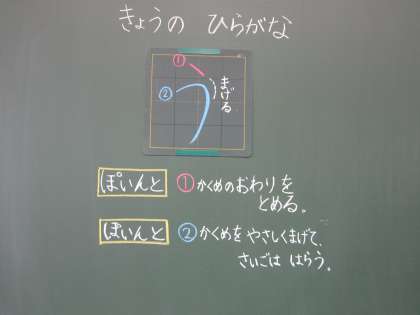 きょうの ひらがな
①
②
う
まげる
ぽいんと ①かくめのおわりを
とめる。
ぽいんと ②かくめをやさしくまげて、
さいごは はらう。